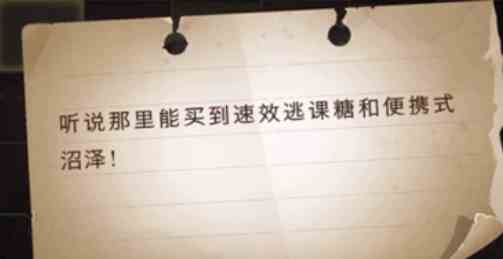 听说那里能买到速效逃课糖和便携式
沼泽！